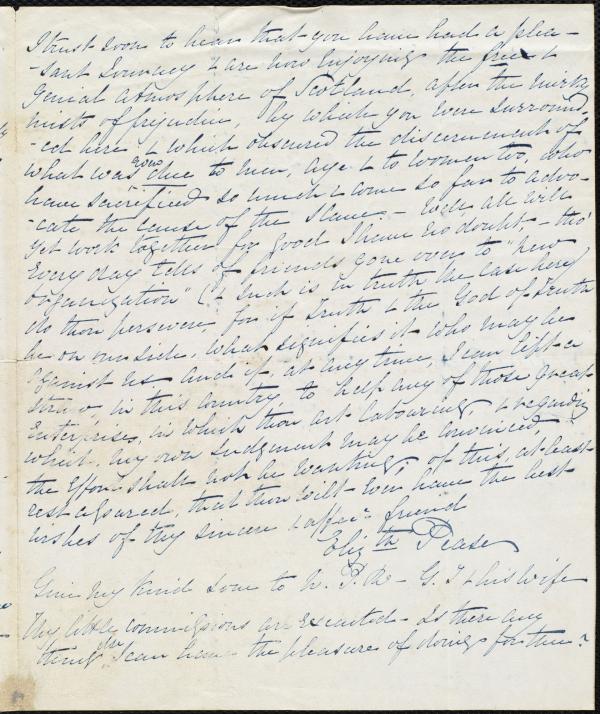 I trust soon to hear that you have had a plea-
-sant Journey & are now enjoying the free &
genial atmosphere of Scotland, after the murky
mists of prejudice, by which you were surround
-ed here & which obscured the discernment of
what was even due to men, aye & to women too, who
have sacrificed so much & come so far to advo-
-cate the cause of the Slave, - Well all will
yet work together for good I have no doubt, - tho'
every day tells of friends gone over to "new
organization" (& such is in truth the case here)
do thou persevere for if Truth & the God of Truth
be on our side, what signifies it who may be
against us and if, at any time, I can lift a
straw, in this country, to help any of those great
enterprises, in which thou art labouring, & regarding
which, my own Judgment may be convinced,
the effort shall not be wanting; of this, at least
rest assured, that thou wilt ever have the best
wishes of thy sincere & affec.. friend
Eliz.th Pease
Give my kind love to N. P. R - G. T & his wife
Thy little commissions are executed - Is there any
thing else I can have the pleasure of doing for thee?